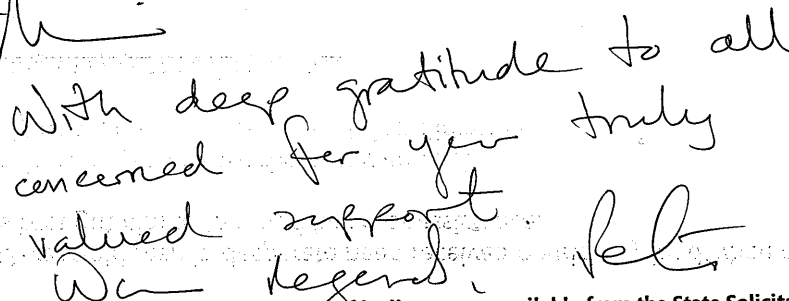 With deep gratitude to all
concerned for your truly
valued support.
Warm regards, Peter
available from the State Solicit